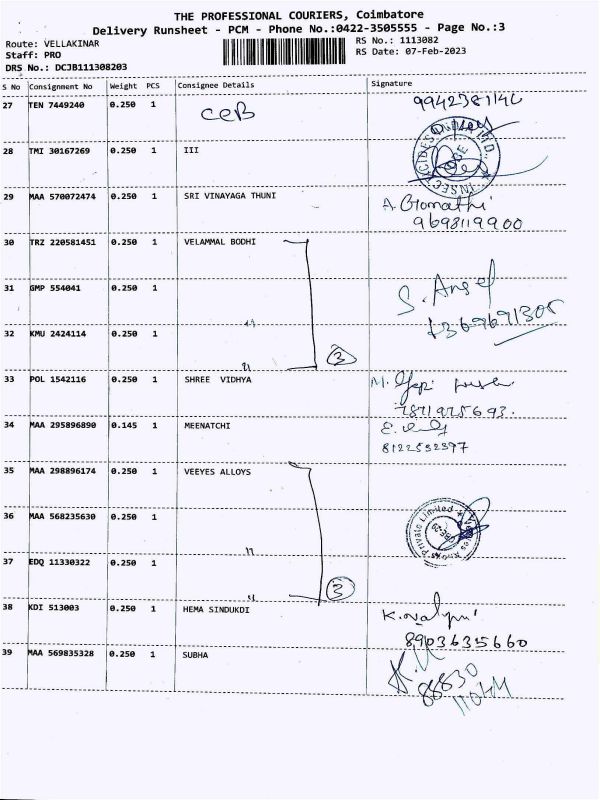 THE PROFESSIONAL COURIERS, Coimbatore
Delivery Runsheet - PCM - Phone No.:0422-3505555 - Page No.:3
Route: VELLAKINAR
Staff: PRO
DRS No.: DCJB111308203
RS No.: 1113082
RS Date: 07-Feb-2023
S No Consignment No Weight PCS Consignee Details Signature
27 TEN 7449240 0.250 1 CEB
28 TMI 30167269 0.250 1 III
29 MAA 570072474 0.250 1 SRI VINAYAGA THUNI A. Gomathi
9698119900
30 TRZ 220581451 0.250 1 VELAMMAL BODHI
31 GMP 554041 0.250 1
32 KMU 2424114 0.250 1
3
33 POL 1542116 0.250 1 SHREE VIDHYA
34 MAA 295896890 0.145 1 MEENATCHI
8122532397
35 MAA 298896174 0.250 1 VEEYES ALLOYS
36 MAA 568235630 0.250 1 Private Limited
37 EDQ 11330322 0.250 1
3
38 KDI 513003 0.250 1 HEMA SINDUKDI
8903635660
39 MAA 569835328 0.250 1 SUBHA